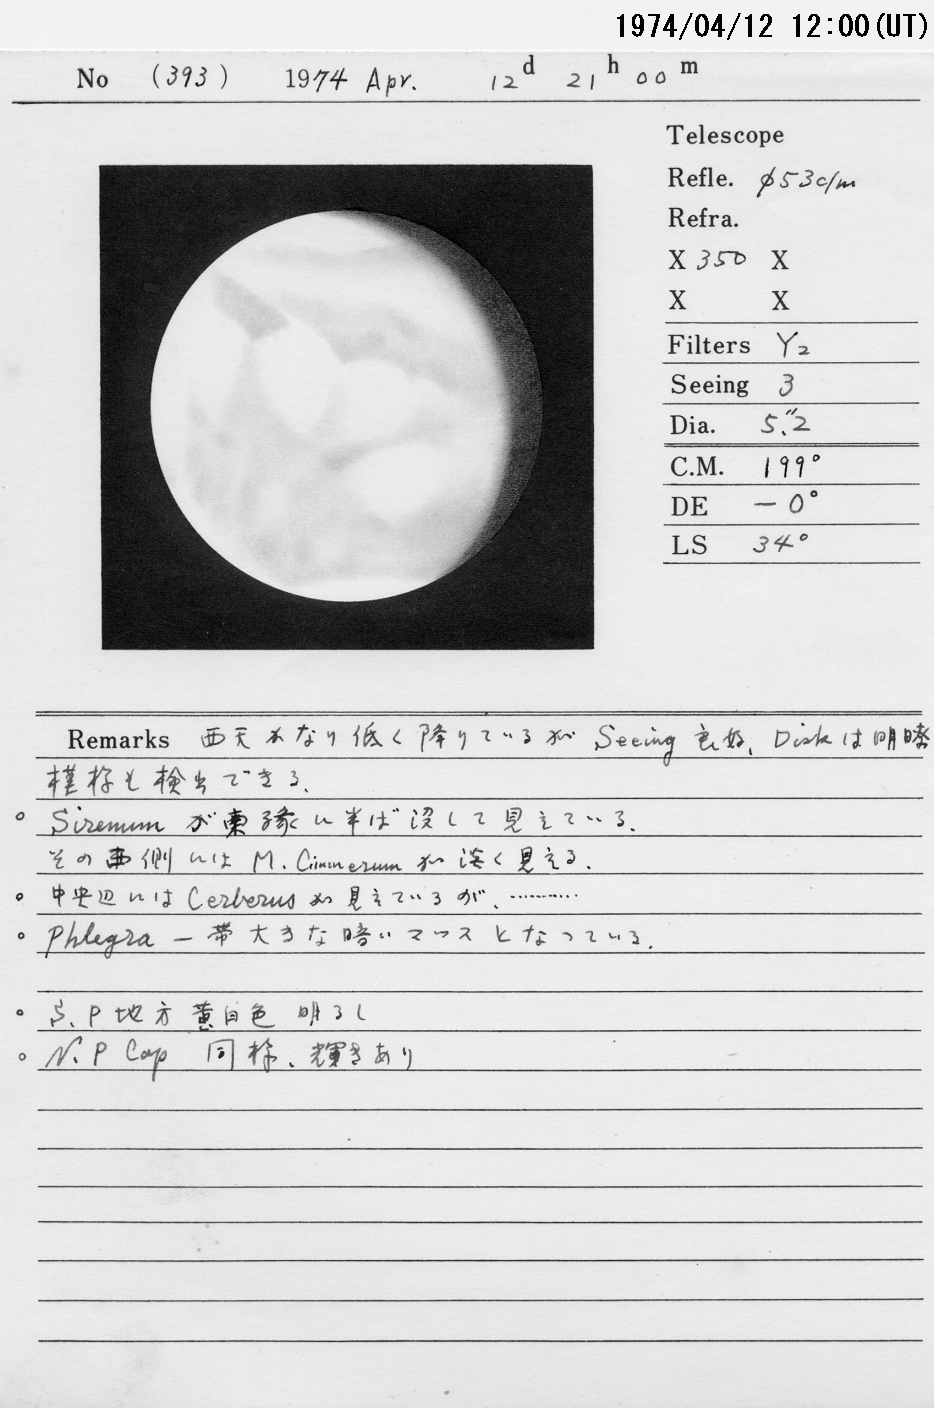 1974/04/12 12:00(UT)
No (393) 1974 Apr. 12d 21h 00m
Telescope
Refle. φ53c/m
Refra.
X 350 X
X X
Filters Y2
Seeing 3
Dia. 5."2
C.M. 199°
DE - 0°
LS 34°
Remarks 西天かなり低く降りているが Seeing 良好、Diskは明晰
模様も検出できる.
○ Sirenumが東縁に半ば没して見えている.
その西側には M. Cimmerumが淡く見える.
○ 中央辺にはCerberusが見えているが、…………
○ Phlegra 一帯大きな暗いマッスとなっている.
○ S.P地方黄白色 明るし
○ N.P Cap 同様、輝きあり